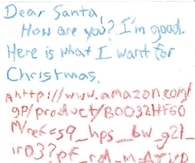 Dear Santa,
How are you? I'm good.
Here is what I want for
Christmas.
https://www.amazon.com/
gp/product/B0032HF60
M/ref=s9_hps_bw_g21_
ir03?pf_rd_m=ATVP